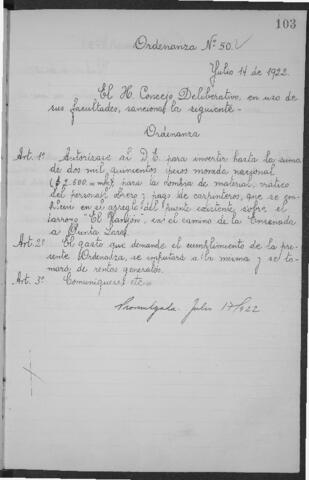 103
Ordenanza Nº 50
Julio 14 de 1922.
El H. Concejo Deliberativo, en uso de
sus facultades, sanciona la siguiente-
Ordenanza
Art. 1º Autorízase al D.E. para invertir hasta la suma
de dos mil quinientos pesos moneda nacional
($ 2.500. m/n) para la compra de material, viático
del personal obrero y pago de carpinteros, que se em-
pleen en el arreglo del puente existente sobre el
arroyo "El Zanjón", en el camino de la Ensenada
a Punta Lara.
Art. 2º El gasto que demande el cumplimiento de la pre-
sente Ordenanza, se imputará a la misma y se to-
mará de rentas generales.
Art. 3º Comuníquese etc.
Promulgada Julio 17/922